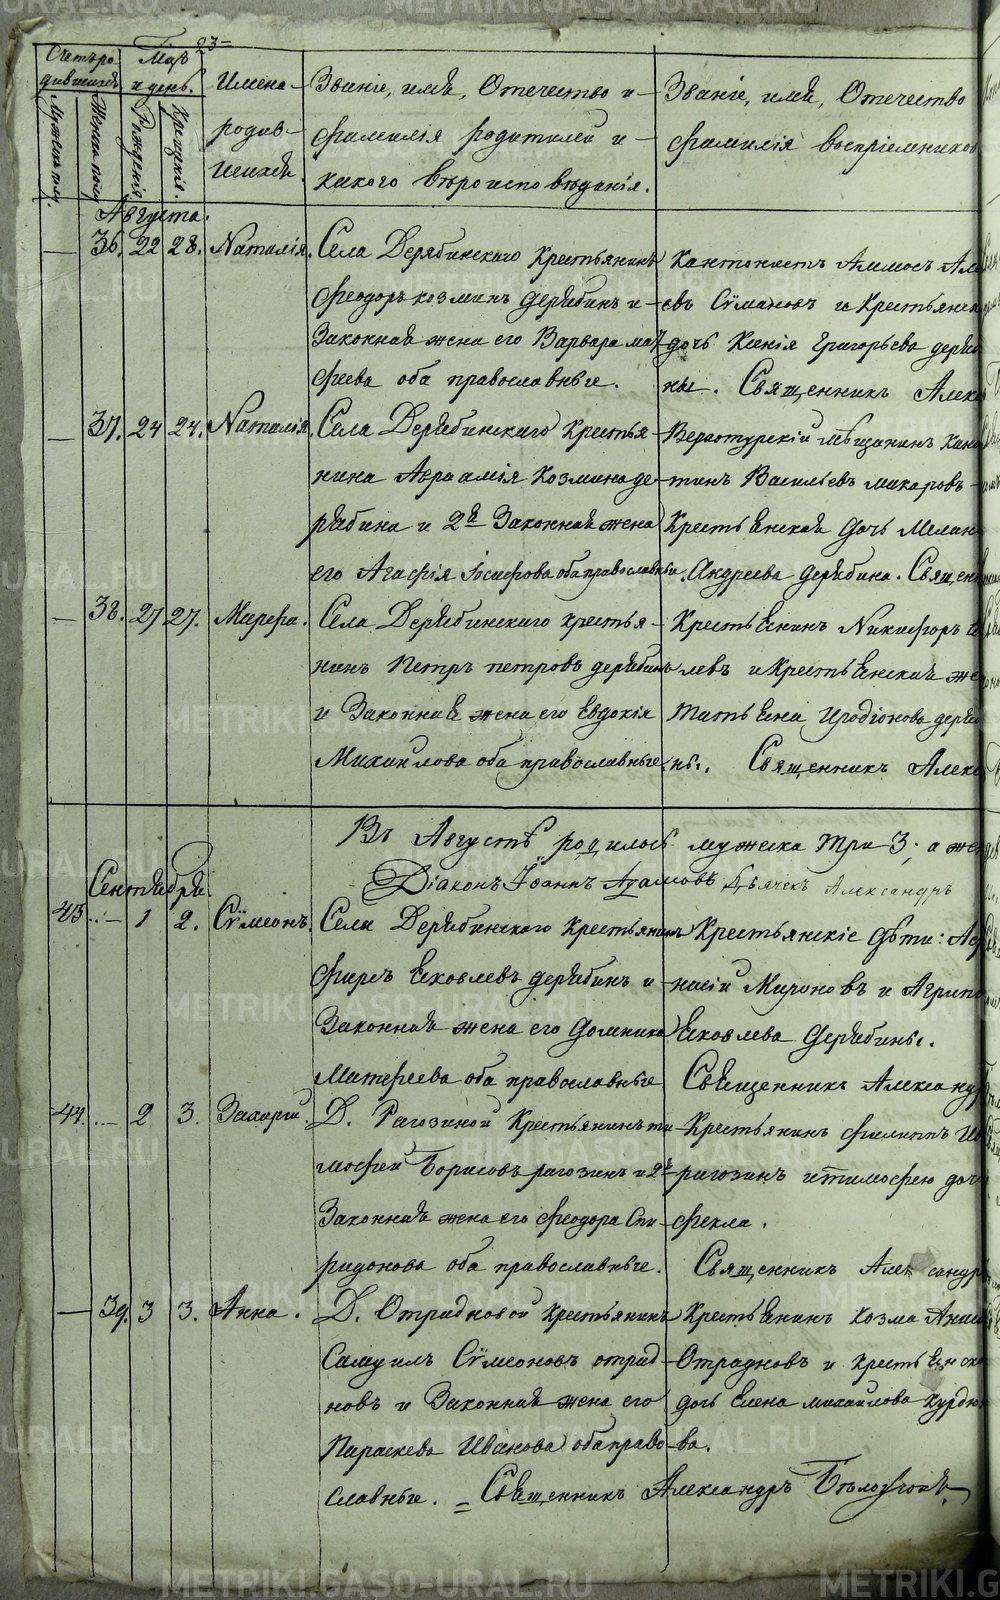 23
Счетъ ро
дившихся
Мѣс:
и день.
Имена
родив-
шихся.
Званіе, имя, Отечество и
фамилія родителей и
какого вѣроисповѣданія.
Званіе, имя, Отечество
фамилія воспріемников
Мужеска полу.
Женска полу
Рожденія
Крещенія.
Августа.
— 36. 22 28. Наталія. Села Дерябинскаго Крестьянинъ
феодоръ козминъ дерябинъ и
Законная жена его Варвара мат
феева оба православные.
Кантонистъ Аммосъ
евъ Сѵмановъ и Крестьянск
дочь Ксенія Григорьева деряб
ны. Священникъ Алекс
— 37. 24 24. Наталія. Села Дерябинскаго Крестья-
нина Авраамія Козмина де-
рябина и 2я Законная жена
его Агафія Іосифова оба православныи.
Верхотурскій мѣщанинъ
тинъ Васильевъ макаровъ
Крестьянская дочь Мелан
Андреева дерябина. Священ
— 38. 27 27. Марфа. Села Дерябинскаго крестья-
нинъ Петръ петровъ дерябинъ
и Законная жена его Евдокія
Михайлова оба православные.
Крестьянинъ Никифоръ
левъ и Крестьянская же
Татьяна Иродіонова деряб
ны. Священникъ Алекс
Въ Августѣ родилось мужеска три 3; а жен
Діаконъ Іоаннъ Адамовъ Дьячекъ Александръ
Сентября.
43. — 1 2. Сѵмеонъ. Села Дерябинскаго Крестьянинъ
фирсъ Яковлевъ дерябинъ и
Законная жена его Домника
Матфеева оба православные
Крестьянскіе дѣти: Аф
насій Мироновъ и Агрипп
Яковлева Дерябины.
Священникъ Александ
44. — 2 3. Захарій. Д. Рагозиной Крестьянинъ ти-
мофей Борисовъ рагозинъ и 2я
Законная жена его феодора Спи-
ридонова оба православные.
Крестьянинъ филиппъ
рагозинъ и тимофею дочь
фекла.
Священникъ Александр
— 39. 3 3. Анна. Д. Отрадновой крестьянинъ
Самуилъ Сѵмеоновъ отрад-
новъ и Законная жена его
Параскева Иванова оба право-
славные.
Крестьянинъ Козма
Отрадновъ и крестьянска
дочь Елена михайлова Курдюк
ва.
Священникъ Александръ